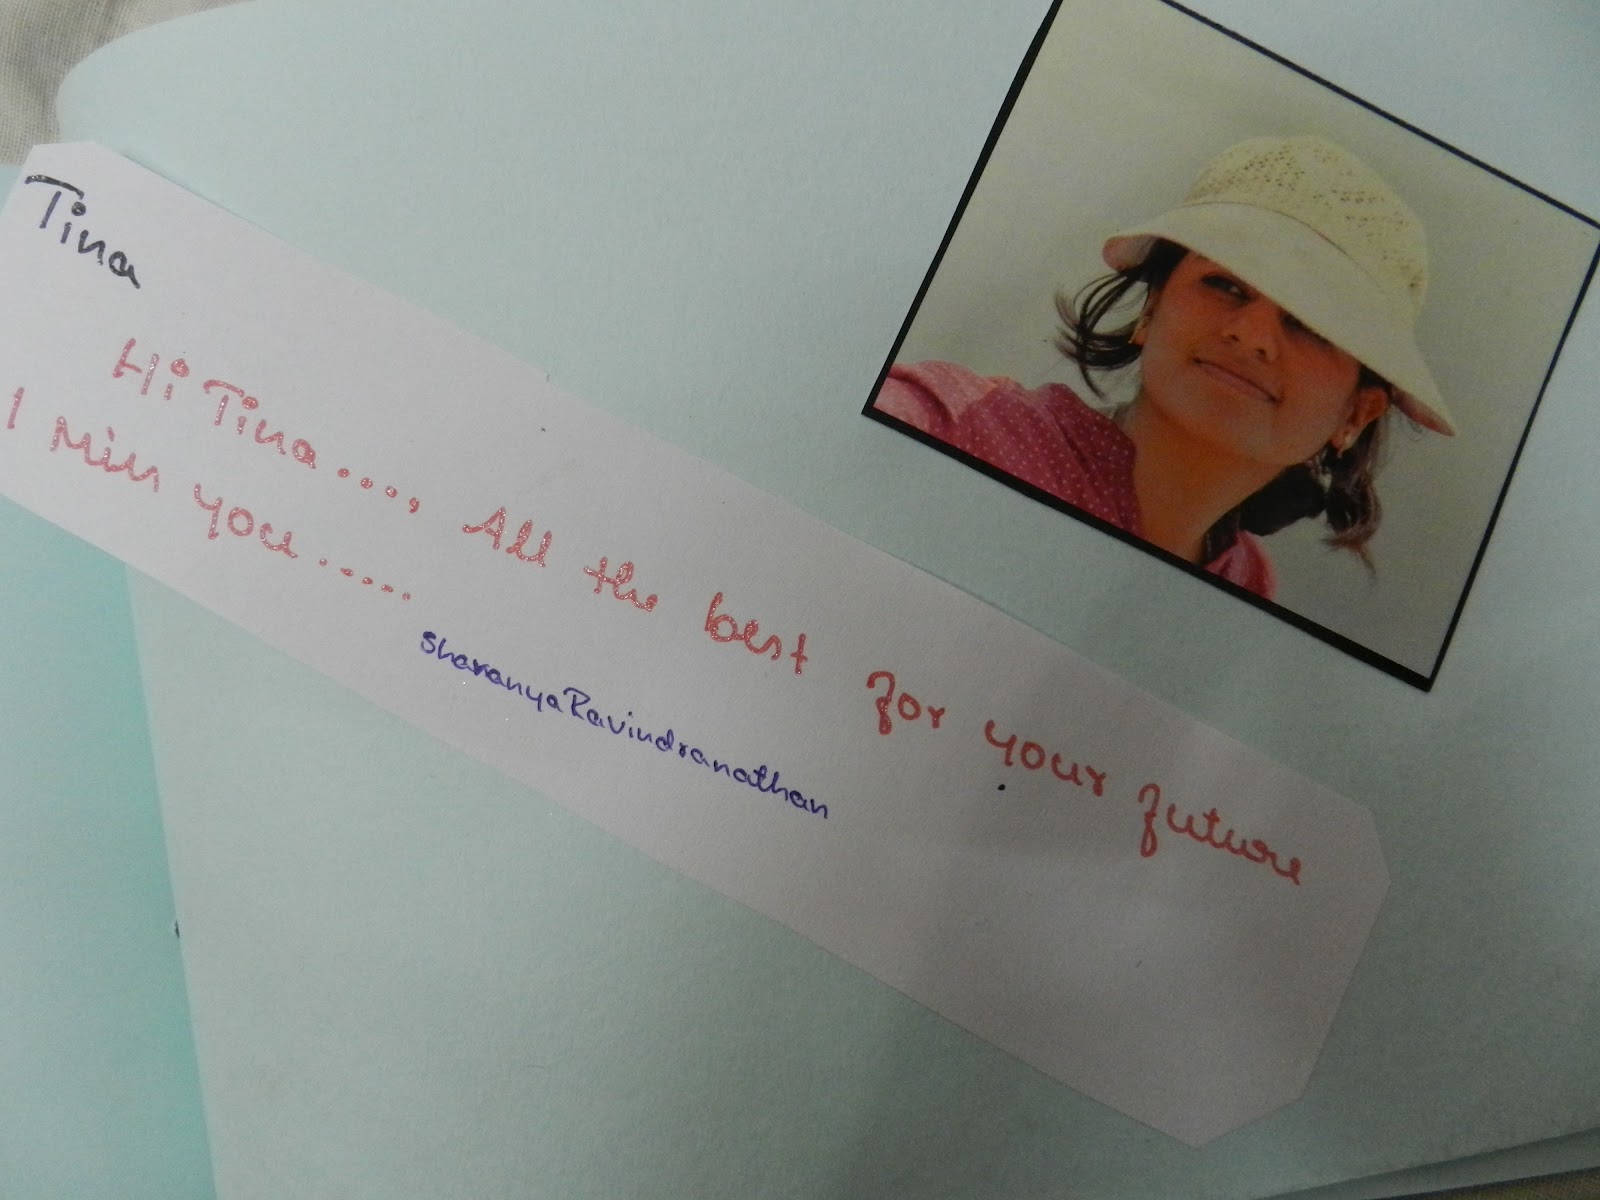 Tina
Hi Tina...., All the best for your future
I Miss you.....
Sharanya Ravindranathan